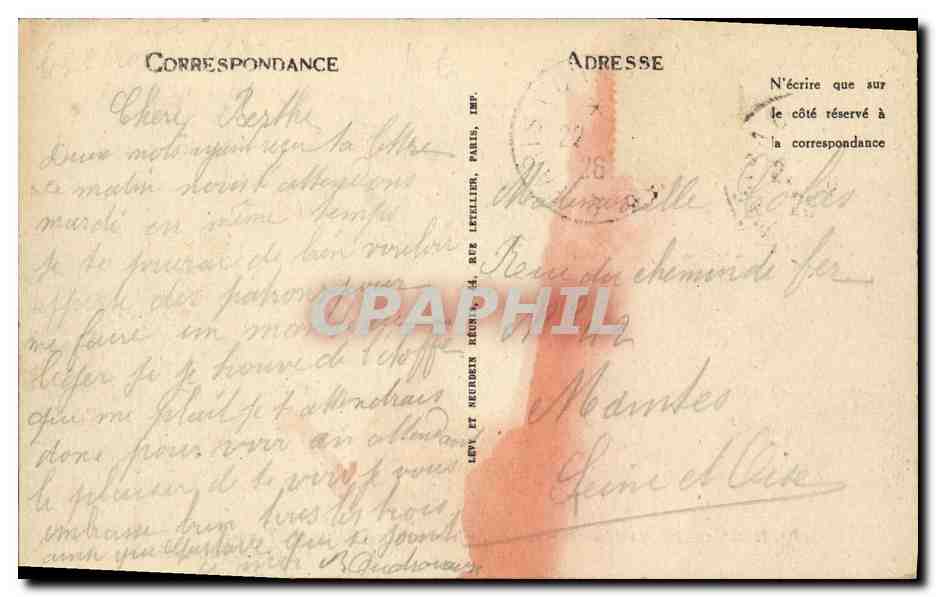 CORRESPONDANCE
Chère Berthe
Deux mots ayant reçu ta lettre
ce matin nous t'attendons
mardi en même temps
je te prierai de bien vouloir
apporte des patrons pour
me faire un manteau
léger si je trouve de l'étoffe
qui me plaît je t'attendrais
donc pour voir en attendant
le plaisir de te voir je vous
embrasse bien tous les trois
ainsi que Gustave qui se joint
à moi
ADRESSE
N'écrire que sur
le côté réservé à
la correspondance
22
26
Mademoiselle
Rue du chemin de fer
N° 42
Mantes
Seine et Oise
LEVY ET NEURDEIN RÉUNIS, 44, RUE LETELLIER, PARIS, IMP.
CPAPHIL